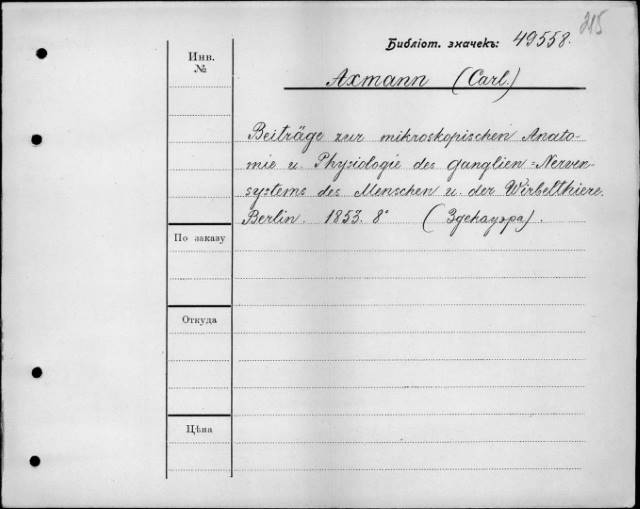 215
Библіот. значекъ: 49558.
Инв. №
Axmann (Carl.)
Beiträge zur mikroskopischen Anato-
mie u. Physiologie des ganglien=Nerven-
systems des Menschen u. der Wirbelthiere.
Berlin. 1853. 8° (Здекауэра).
По заказу
Откуда
Цѣна